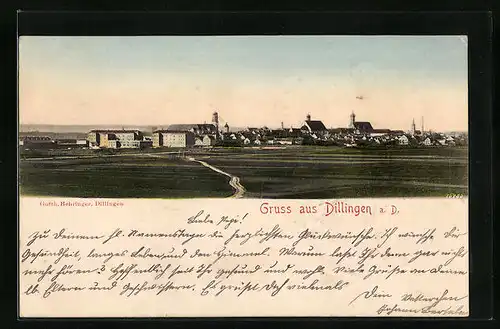 Gebh. Rehringer, Dillingen
Gruss aus Dillingen a. D.
Liebe Pepi!
zu Deinem hl. Namenstage die herzlichsten Glückwünsche. Ich wünsche Dir
Gesundheit, langes Leben, und den Himmel. Warum laßt Ihr denn gar nichts
mehr hören? Hoffentlich seit Ihr gesund und wohl. Viele Grüße an Deine
lb. Eltern und Geschwistern. Es grüßt Dich vielmals
Dein
Johann